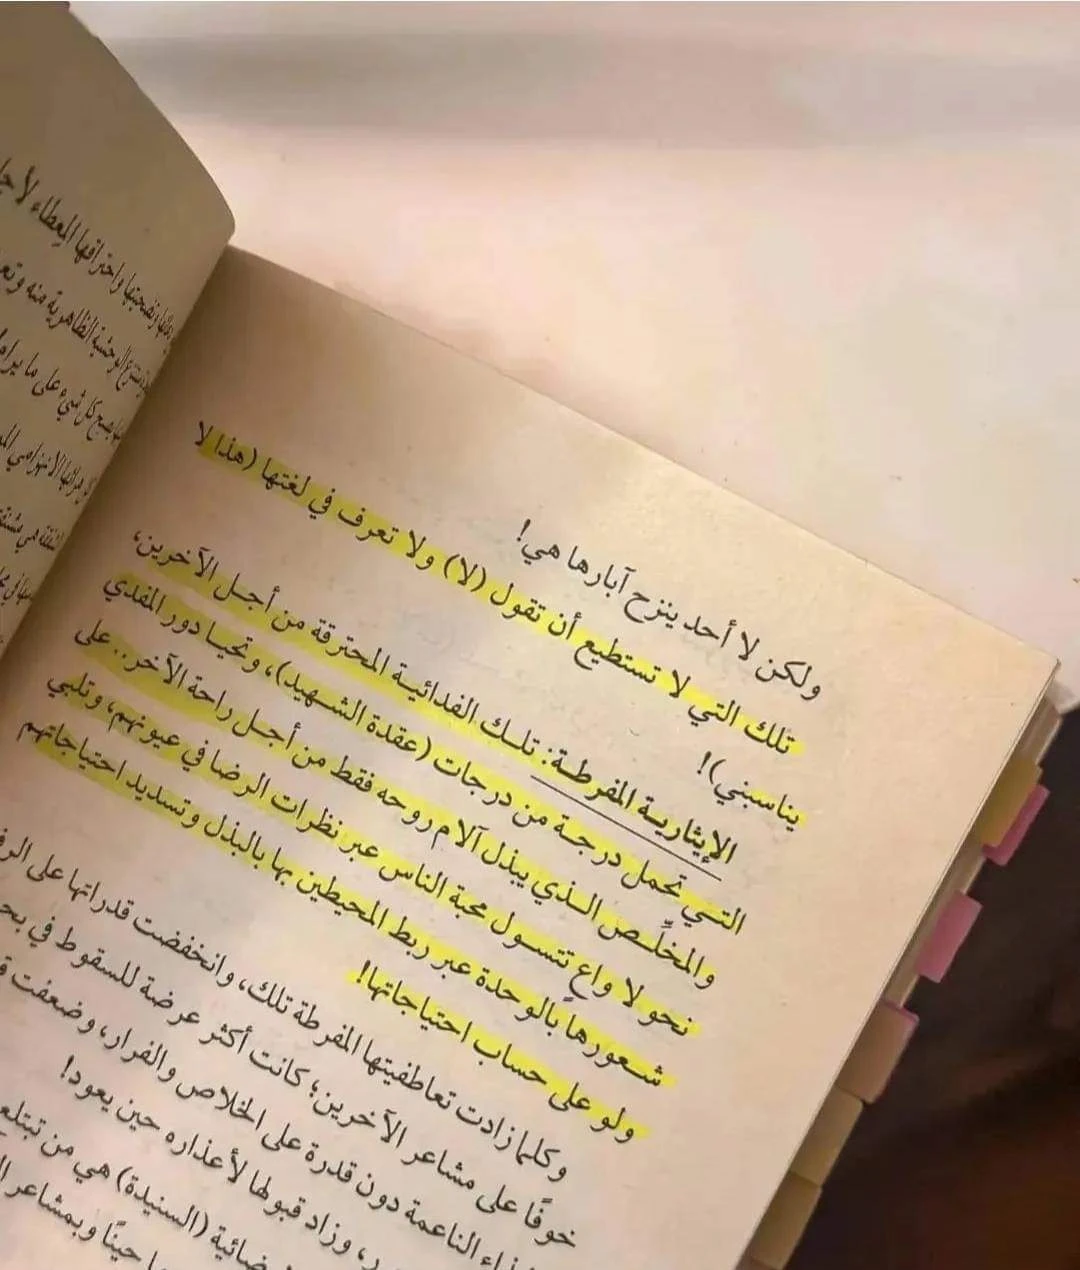 واحتراقها المعطاء لأجل
الوحشية الظاهرية منه
كل شيء على ما يرام
ولكن لا أحد ينزح آبارها هي!
تلك التي لا تستطيع أن تقول (لا) ولا تعرف في لغتها (هذا لا
يناسبني)!
الإيثارية المفرطة: تلك الفدائية المحترقة من أجل الآخرين،
التي تحمل درجة من درجات (عقدة الشهيد)، وتحيا دور المفدي
والمخلّص الذي يبذل آلام روحه فقط من أجل راحة الآخر.. على
نحو لا واع تتسول محبة الناس عبر نظرات الرضا في عيونهم، وتلبي
شعورها بالوحدة عبر ربط المحيطين بها بالبذل وتسديد احتياجاتهم
ولو على حساب احتياجاتها!
وكلما زادت تعاطفيتها المفرطة تلك، وانخفضت قدراتها على
خوفًا على مشاعر الآخرين؛ كانت أكثر عرضة للسقوط في
الناعمة دون قدرة على الخلاص والفرار، وضعفت
وزاد قبولها لأعذاره حين يعود!
(السنيدة) هي من تبتلع
حينًا وبمشاعر